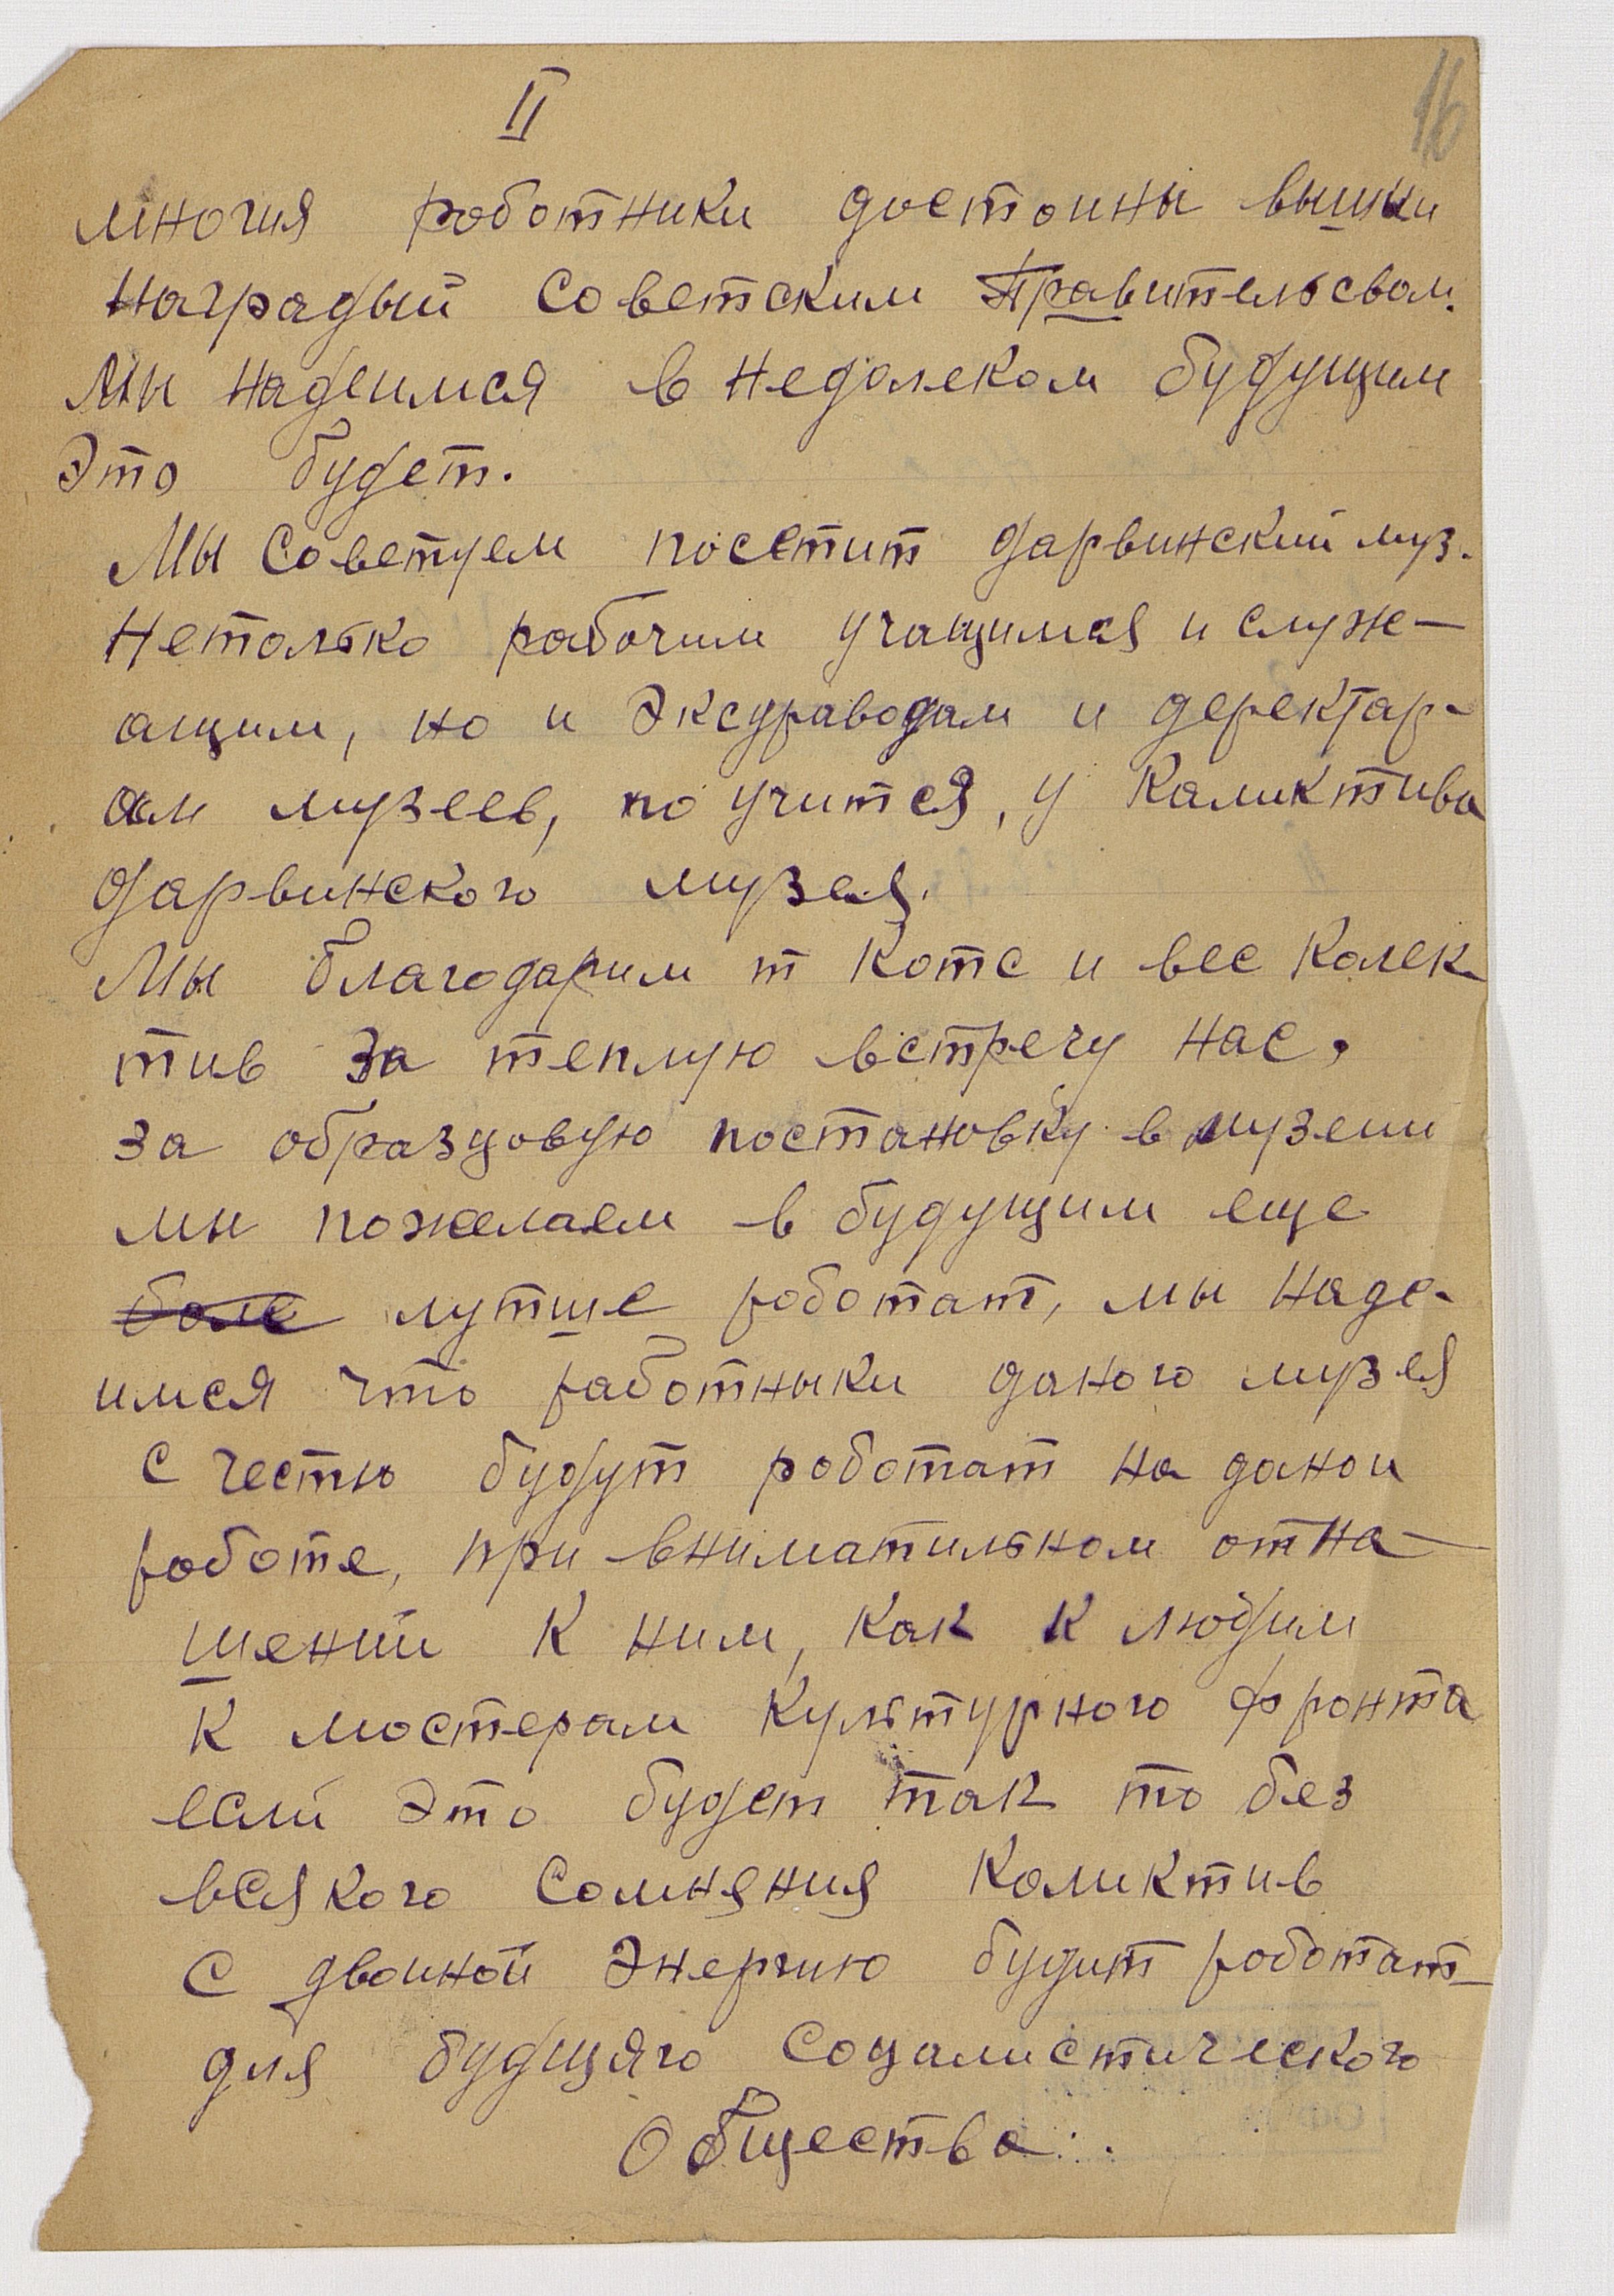 II
16
многия роботники достоины вышки
Наградый Советским Правительсвом.
Мы надеимся в недолеком будущим
Это будет.
Мы Советуем посетит дарвинский муз.
Нетолько рабочим учащимся и служ-
ащим, но и Эксдраводам и деректар-
ам музеев, по учится, у Каликтива
дарвинского музея.
Мы благодарим т Котс и все Колек-
тив За теплую встречу нас,
за образцовую постановку в музеии
мы пожелаем в будущим еще
боле лутше роботат, мы Наде-
имся что работныки даного музея
с честю будут роботат на даной
роботе, при вниматильном отна-
шений к ним, как к людим
К мостерам Культурного фронта
если Это будет так то без
всякого Сомняния Каликтив
с двоиной Энергию будит роботат-
для будущяго Социалистического
Общества..